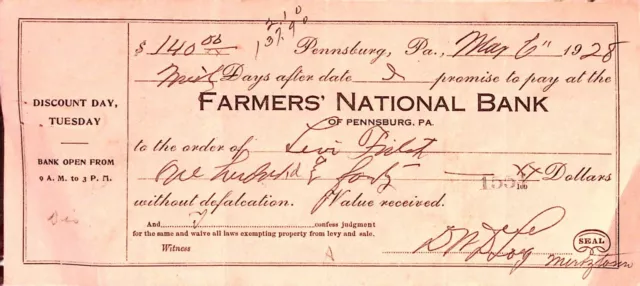 $ 140 00/xx Pennsburg, Pa., Mar 6" 1928
Days after date I promise to pay at the
FARMERS' NATIONAL BANK
OF PENNSBURG, PA.
to the order of Levi
One hundred & forty xx/100 Dollars
without defalcation. Value received.
And I confess judgment
for the same and waive all laws exempting property from levy and sale.
Witness
SEAL
Mertztown
DISCOUNT DAY,
TUESDAY
BANK OPEN FROM
9 A. M. TO 3 P. M.